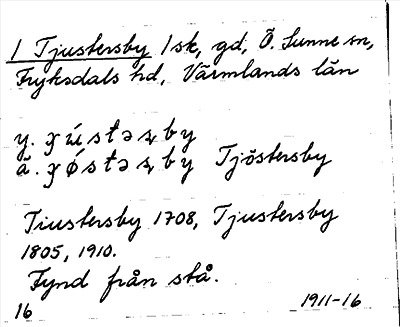 1 Tjustersby 1sk, gd, Ö. Sunne sn,
Fryksdals hd, Värmlands län
y.
ä. Tjöstersby
Tiustersby 1708, Tjustersby
1805, 1910.
Fynd från stå.
16 1911-16